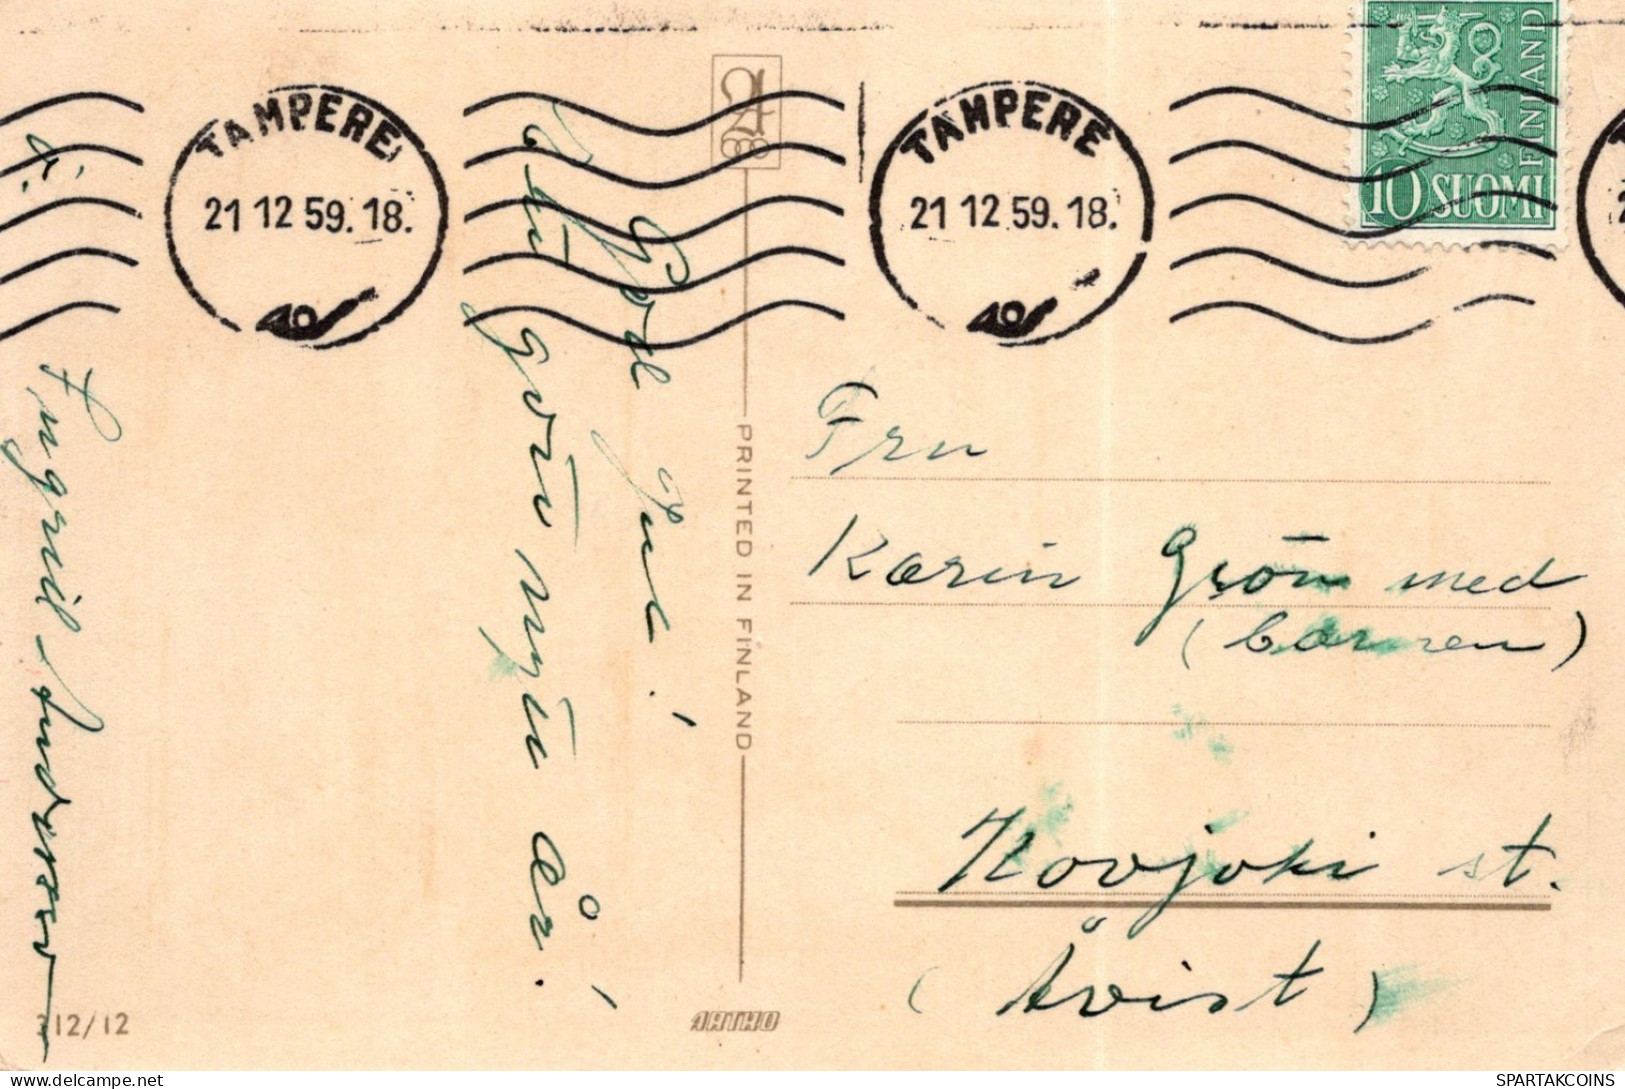 TAMPERE
21 12 59. 18.
TAMPERE
21 12 59. 18.
FINLAND
10 SUOMI
God Jul!
Gott nytt år!
Ingrid Andersson
PRINTED IN FINLAND
Fru
Karin Grön med
(barnen)
Kovjoki st.
(Åvist)
312/12
ARTKO
SPARTAKCOINS